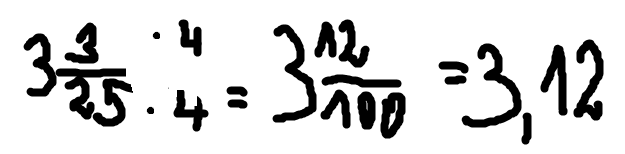 3 3/25 · 4 / · 4 = 3 12/100 = 3,12